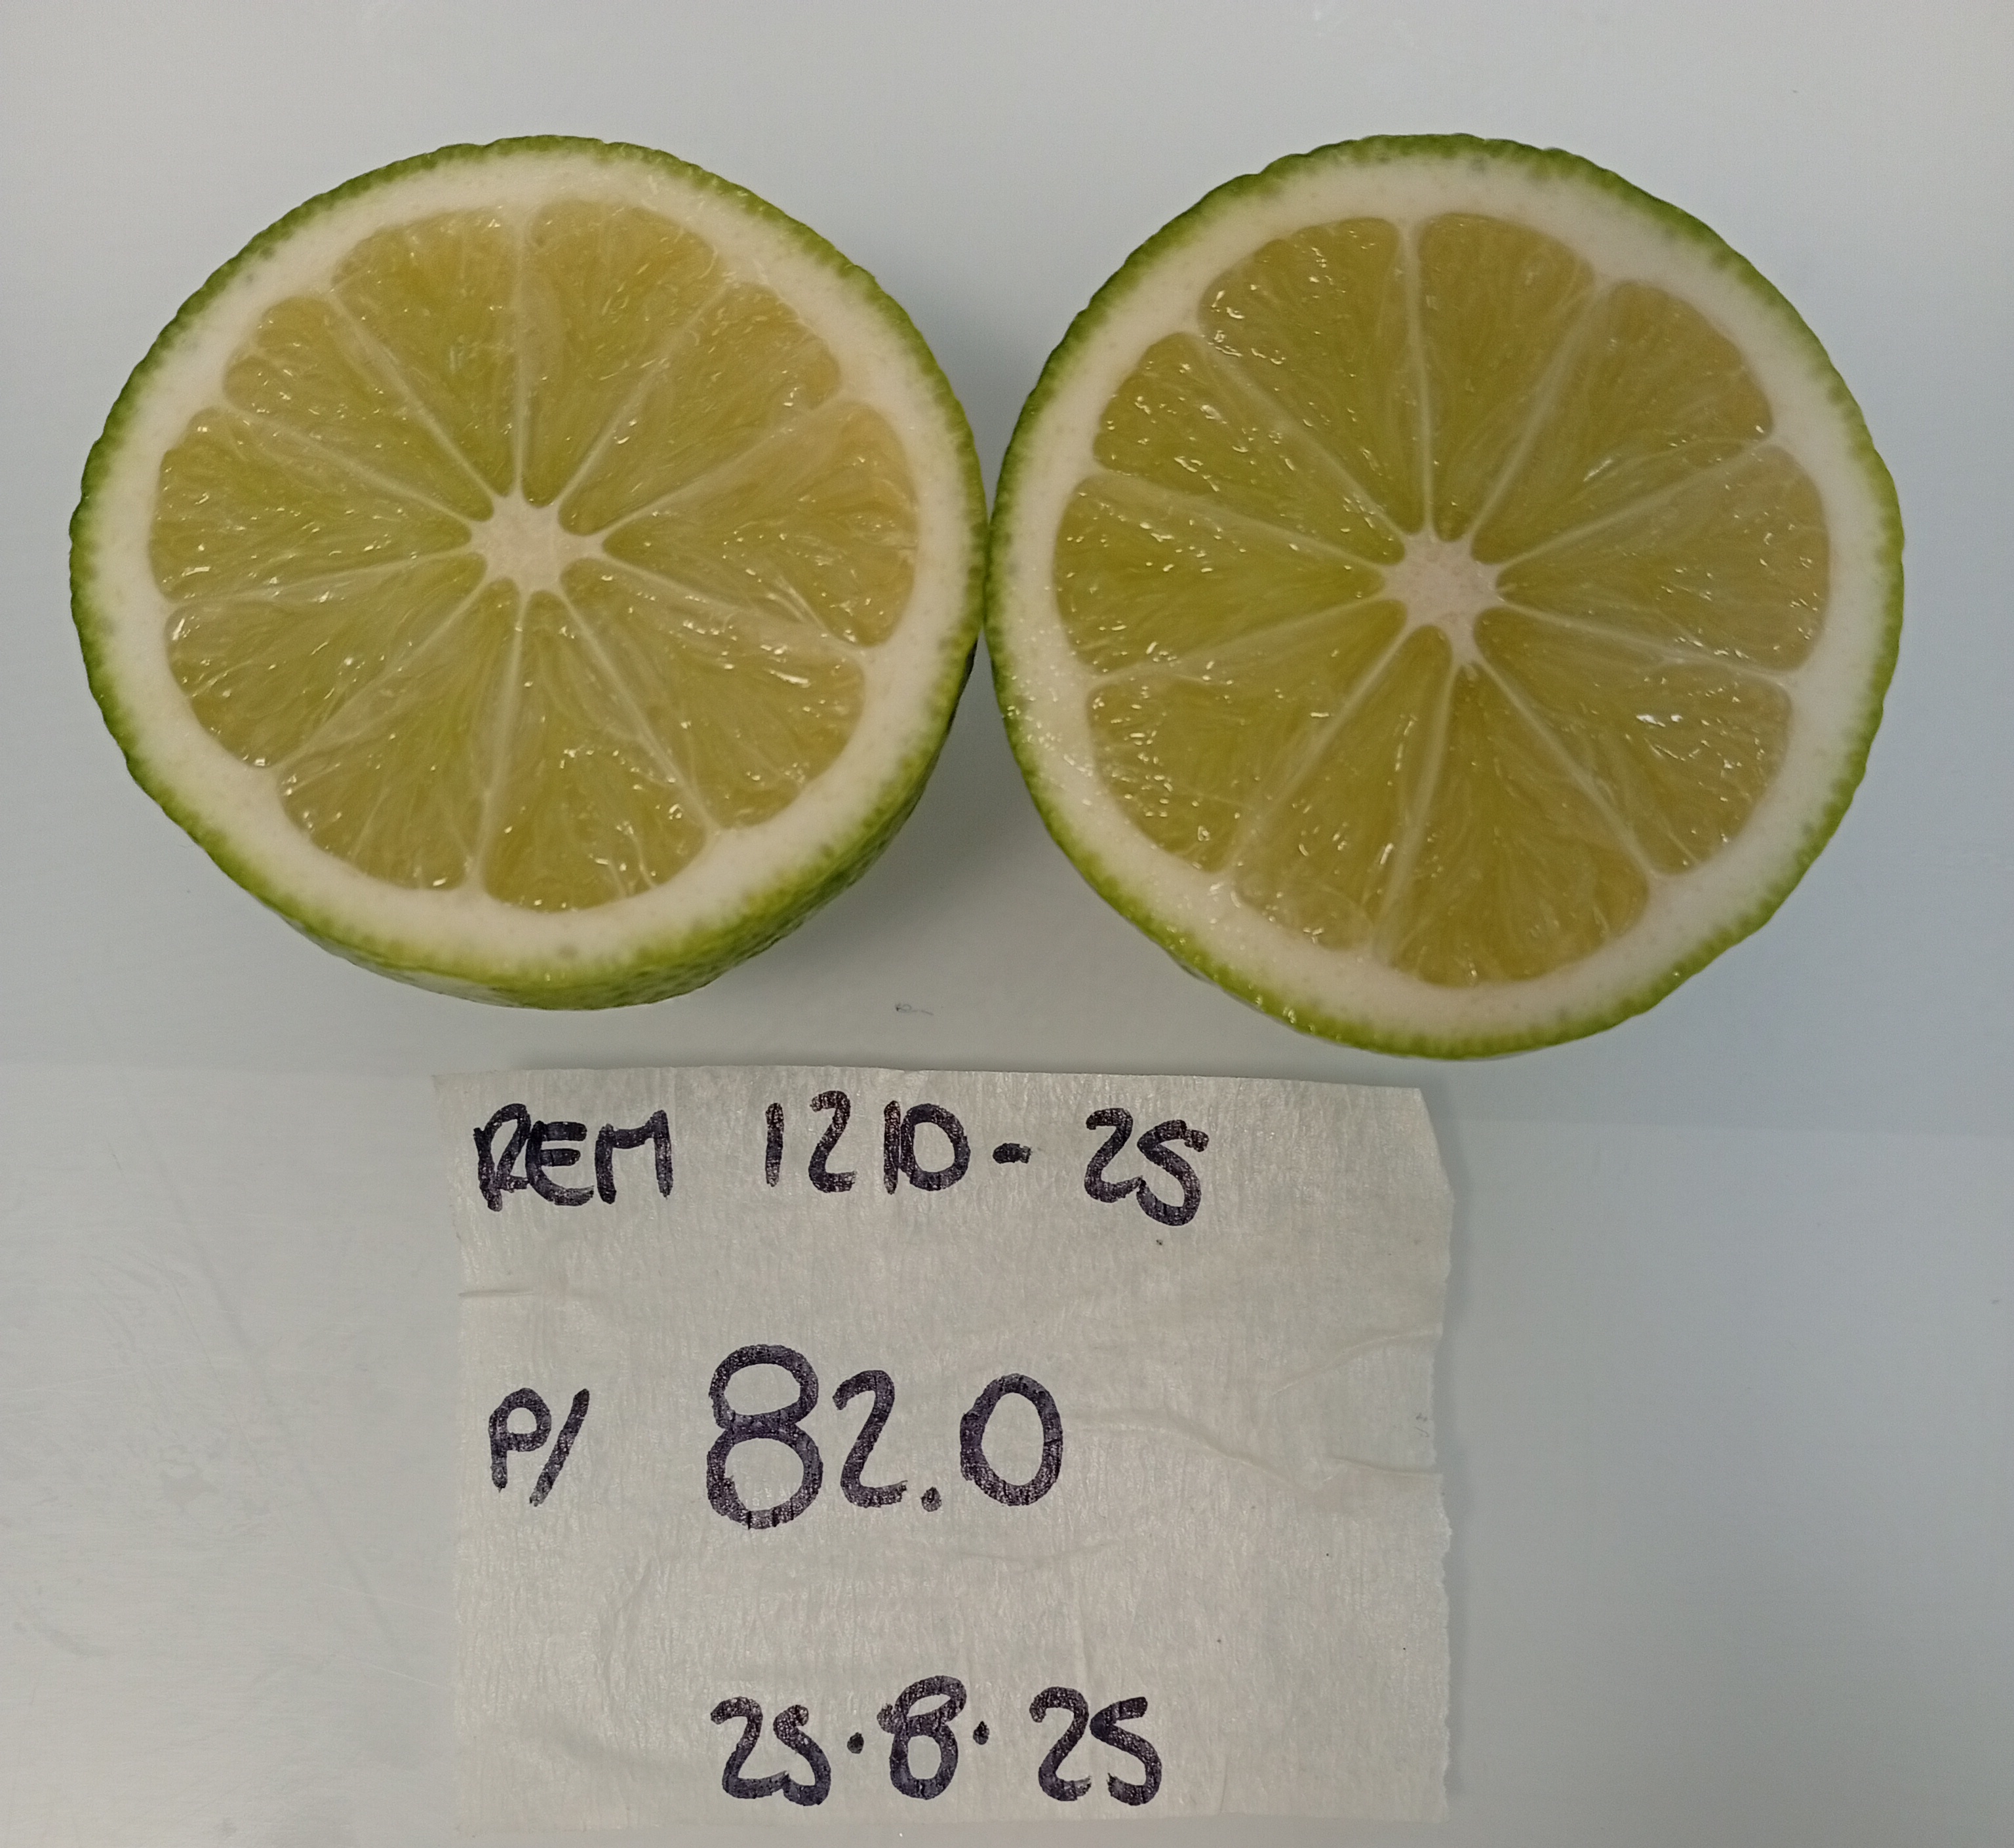 REM 1210-25
P/ 82.0
25·8·25